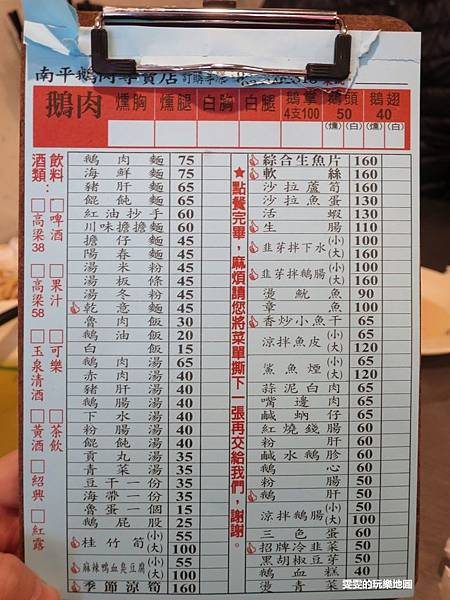 南平鵝肉專賣店 訂購專
鵝肉 燻胸 燻腿 白胸 白腿 鵝掌 4支100 鵝頭 50 (燻)(白) 鵝翅 40 (燻)(白)
飲料
啤酒
果汁
可樂
茶飲
酒類:
高梁38
高梁58
玉泉清酒
黃酒
紹興
紅露
鵝肉麵 75
海鮮麵 75
豬肝麵 65
餛飩麵 65
紅油抄手 60
川味擔擔麵 60
擔仔麵 45
陽春麵 45
湯米粉 45
湯板條 45
湯冬粉 45
乾意麵 45
魯肉飯 30
鵝油飯 20
白飯 15
鵝肉湯 65
赤肉湯 40
豬肝湯 40
鵝腸湯 40
下水湯 40
粉腸湯 40
餛飩湯 40
貢丸湯 35
青菜湯 35
豆干一份 35
海帶一份 35
魯蛋一個 15
鵝屁股 25
桂竹筍 (小) 55
(大) 100
麻辣鴨血臭豆腐 (小) 55
(大) 100
季節涼筍 160
★點餐完畢，麻煩請您將菜單撕下一張再交給我們，謝謝。
綜合生魚片 160
軟絲 160
沙拉蘆筍 160
沙拉魚蛋 130
活蝦 130
生腸 110
韭芽拌下水 (小) 100
(大) 160
韭芽拌鵝腸 (小) 100
(大) 160
燙魷魚 90
章魚 100
香炒小魚干 65
涼拌魚皮 (小) 65
(大) 120
鯊魚煙 (小) 65
(大) 120
蒜泥白肉 65
嘴邊肉 65
鹹蚋仔 65
紅燒錢腸 60
粉肝 60
鹹水鵝胗 60
鵝心 60
粉腸 50
鵝肝 50
涼拌鵝腸 (小) 50
(大) 100
三色蛋 60
招牌冷韭菜 50
黑胡椒豆芽 50
鵝血糕 40
燙青菜 40
雯雯的玩樂地圖